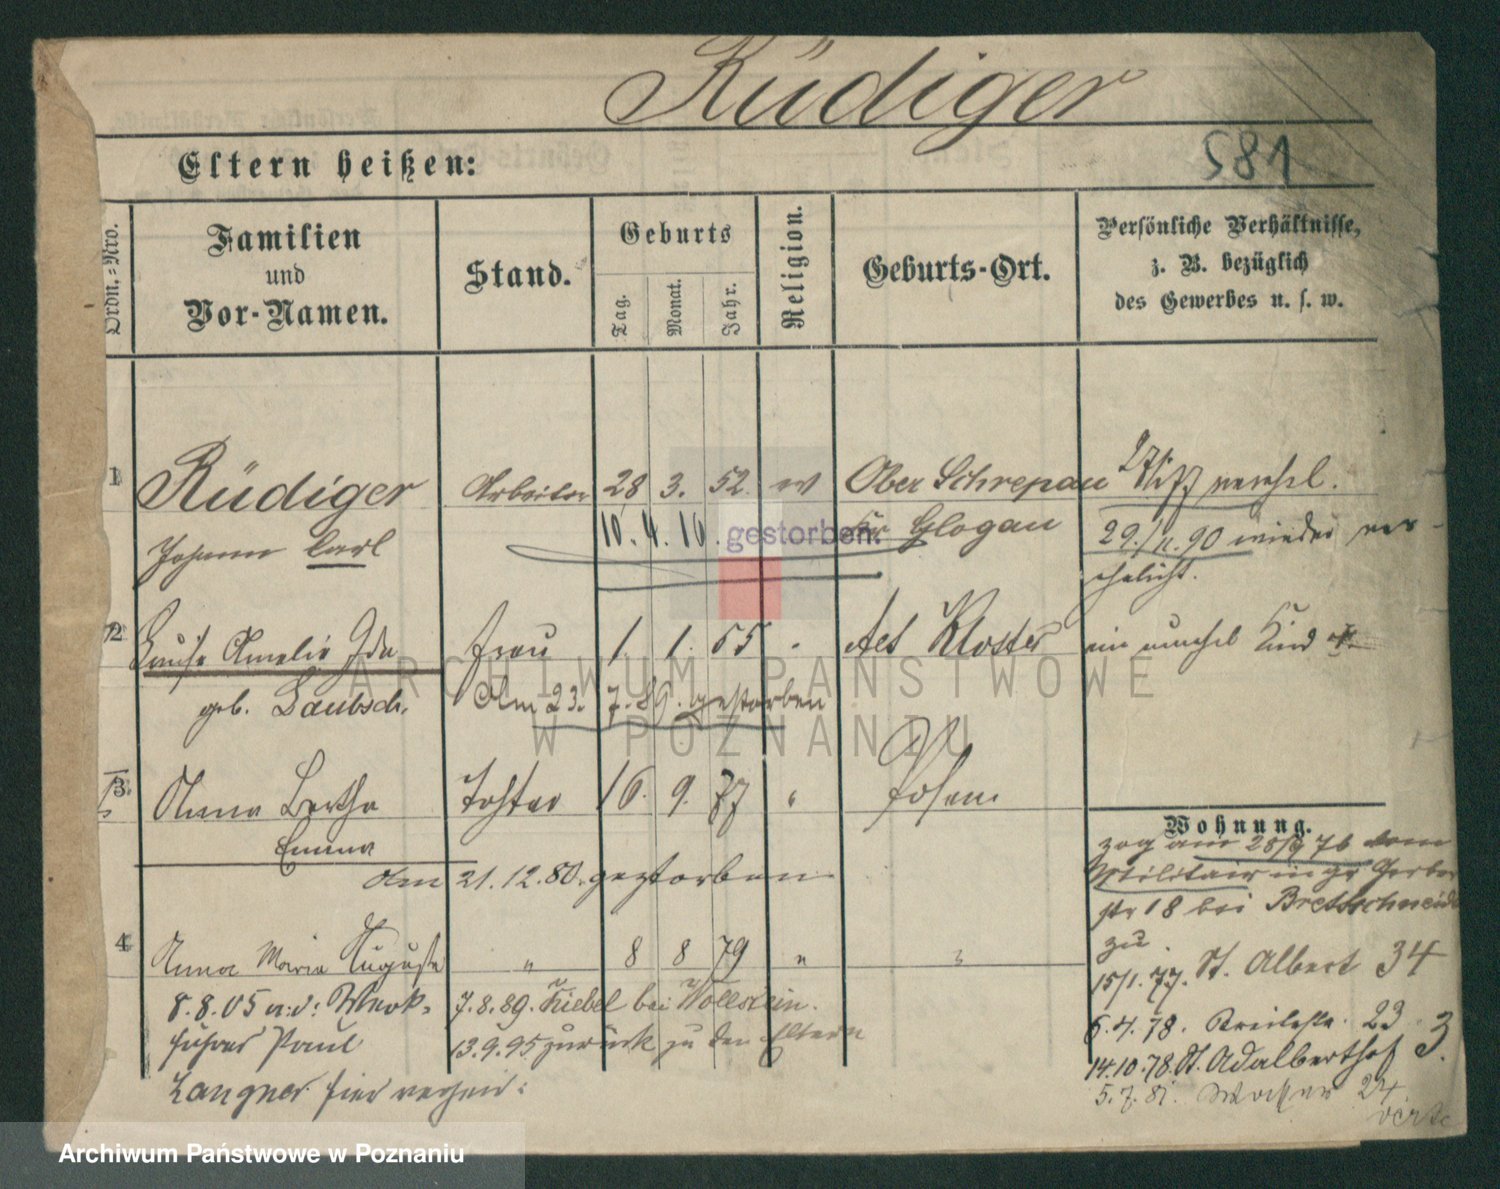 Rüdiger
581
Eltern heißen:
Ordn.-Nro.
Familien
und
Vor-Namen.
Stand.
Geburts
Tag.
Monat.
Jahr.
Religion.
Geburts-Ort.
Persönliche Verhältnisse,
z. B. bezüglich
des Gewerbes u. s. w.
1 Rüdiger Arbeiter 28 3. 52. Ober Schrepau
Johann Carl 10. 4. 16. gestorben. Kr. Glogau
29./11. 90 wieder ver-
ehelicht.
2 Louise Amalie Ida Frau 1. 1. 55 " Alt Kloster
geb. Laubsch. Am 23. 7. 89. gestorben
3 Anna Bertha Tochter 16. 9. 77 " Posen
Emma
Am 21.12.80. gestorben
4 Anna Maria Auguste " 8 8 79 " "
8.8.05 a. d. Werk-
führer Paul
Langner hier verheir:
7.8.89. Kiebel bei Wollstein.
13.9.95 zurück zu den Eltern
Wohnung.
zog am 28/9 76 vom
Militair in gr Gerber
str 18 bei Bretschneider
zu.
15/1. 77. St. Albert 34
6.4.78. Breitestr. 23
14.10.78. St. Adalberthof 3.
5.7.81. Wasser 24
ARCHIWUM PAŃSTWOWE
W POZNANIU
Archiwum Państwowe w Poznaniu